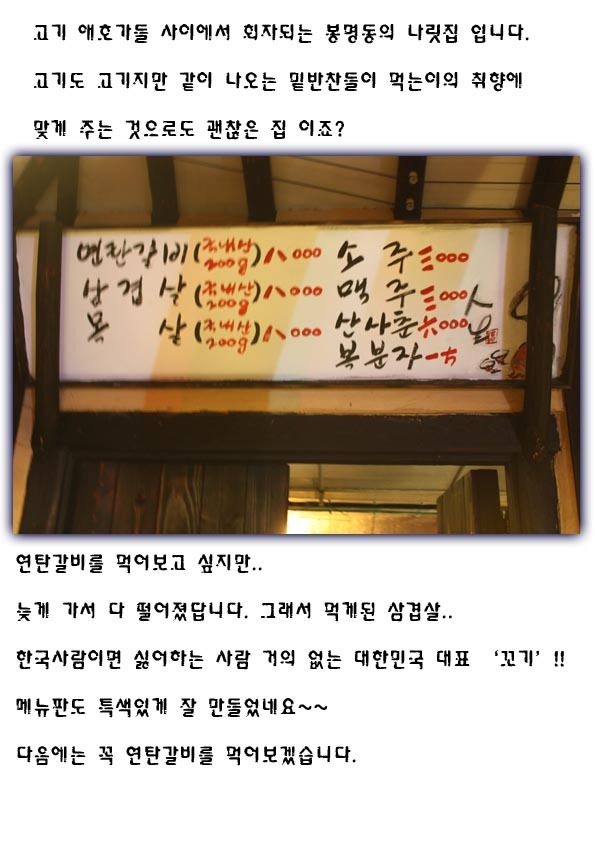 고기 애호가들 사이에서 회자되는 봉명동의 나릿집 입니다.
고기도 고기지만 같이 나오는 밑반찬들이 먹는이의 취향에
맞게 주는 것으로도 괜찮은 집 이죠?
연탄갈비(국내산 200g)八000 소주三000
삼겹살(국내산 200g)八000 맥주三000
목살(국내산 200g)八000 산사춘六000
복분자一
연탄갈비를 먹어보고 싶지만..
늦게 가서 다 떨어졌답니다. 그래서 먹게된 삼겹살..
한국사람이면 싫어하는 사람 거의 없는 대한민국 대표 ‘꼬기’ !!
메뉴판도 특색있게 잘 만들었네요~~
다음에는 꼭 연탄갈비를 먹어보겠습니다.